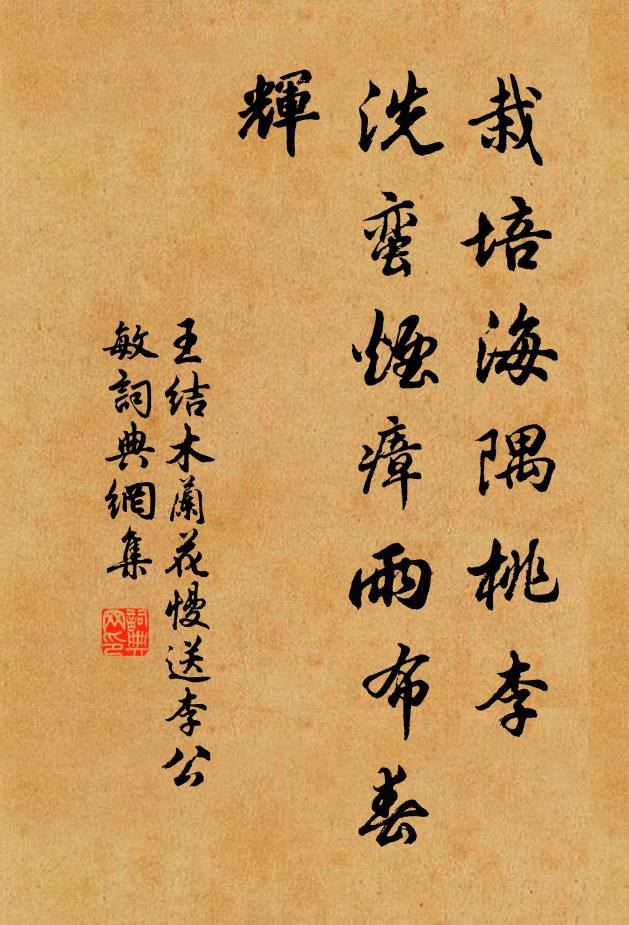 栽培海隅桃李
洗蛮煙瘴雨布春
輝
王结木蘭花慢送李公
敏詞典網集
詞典
网印